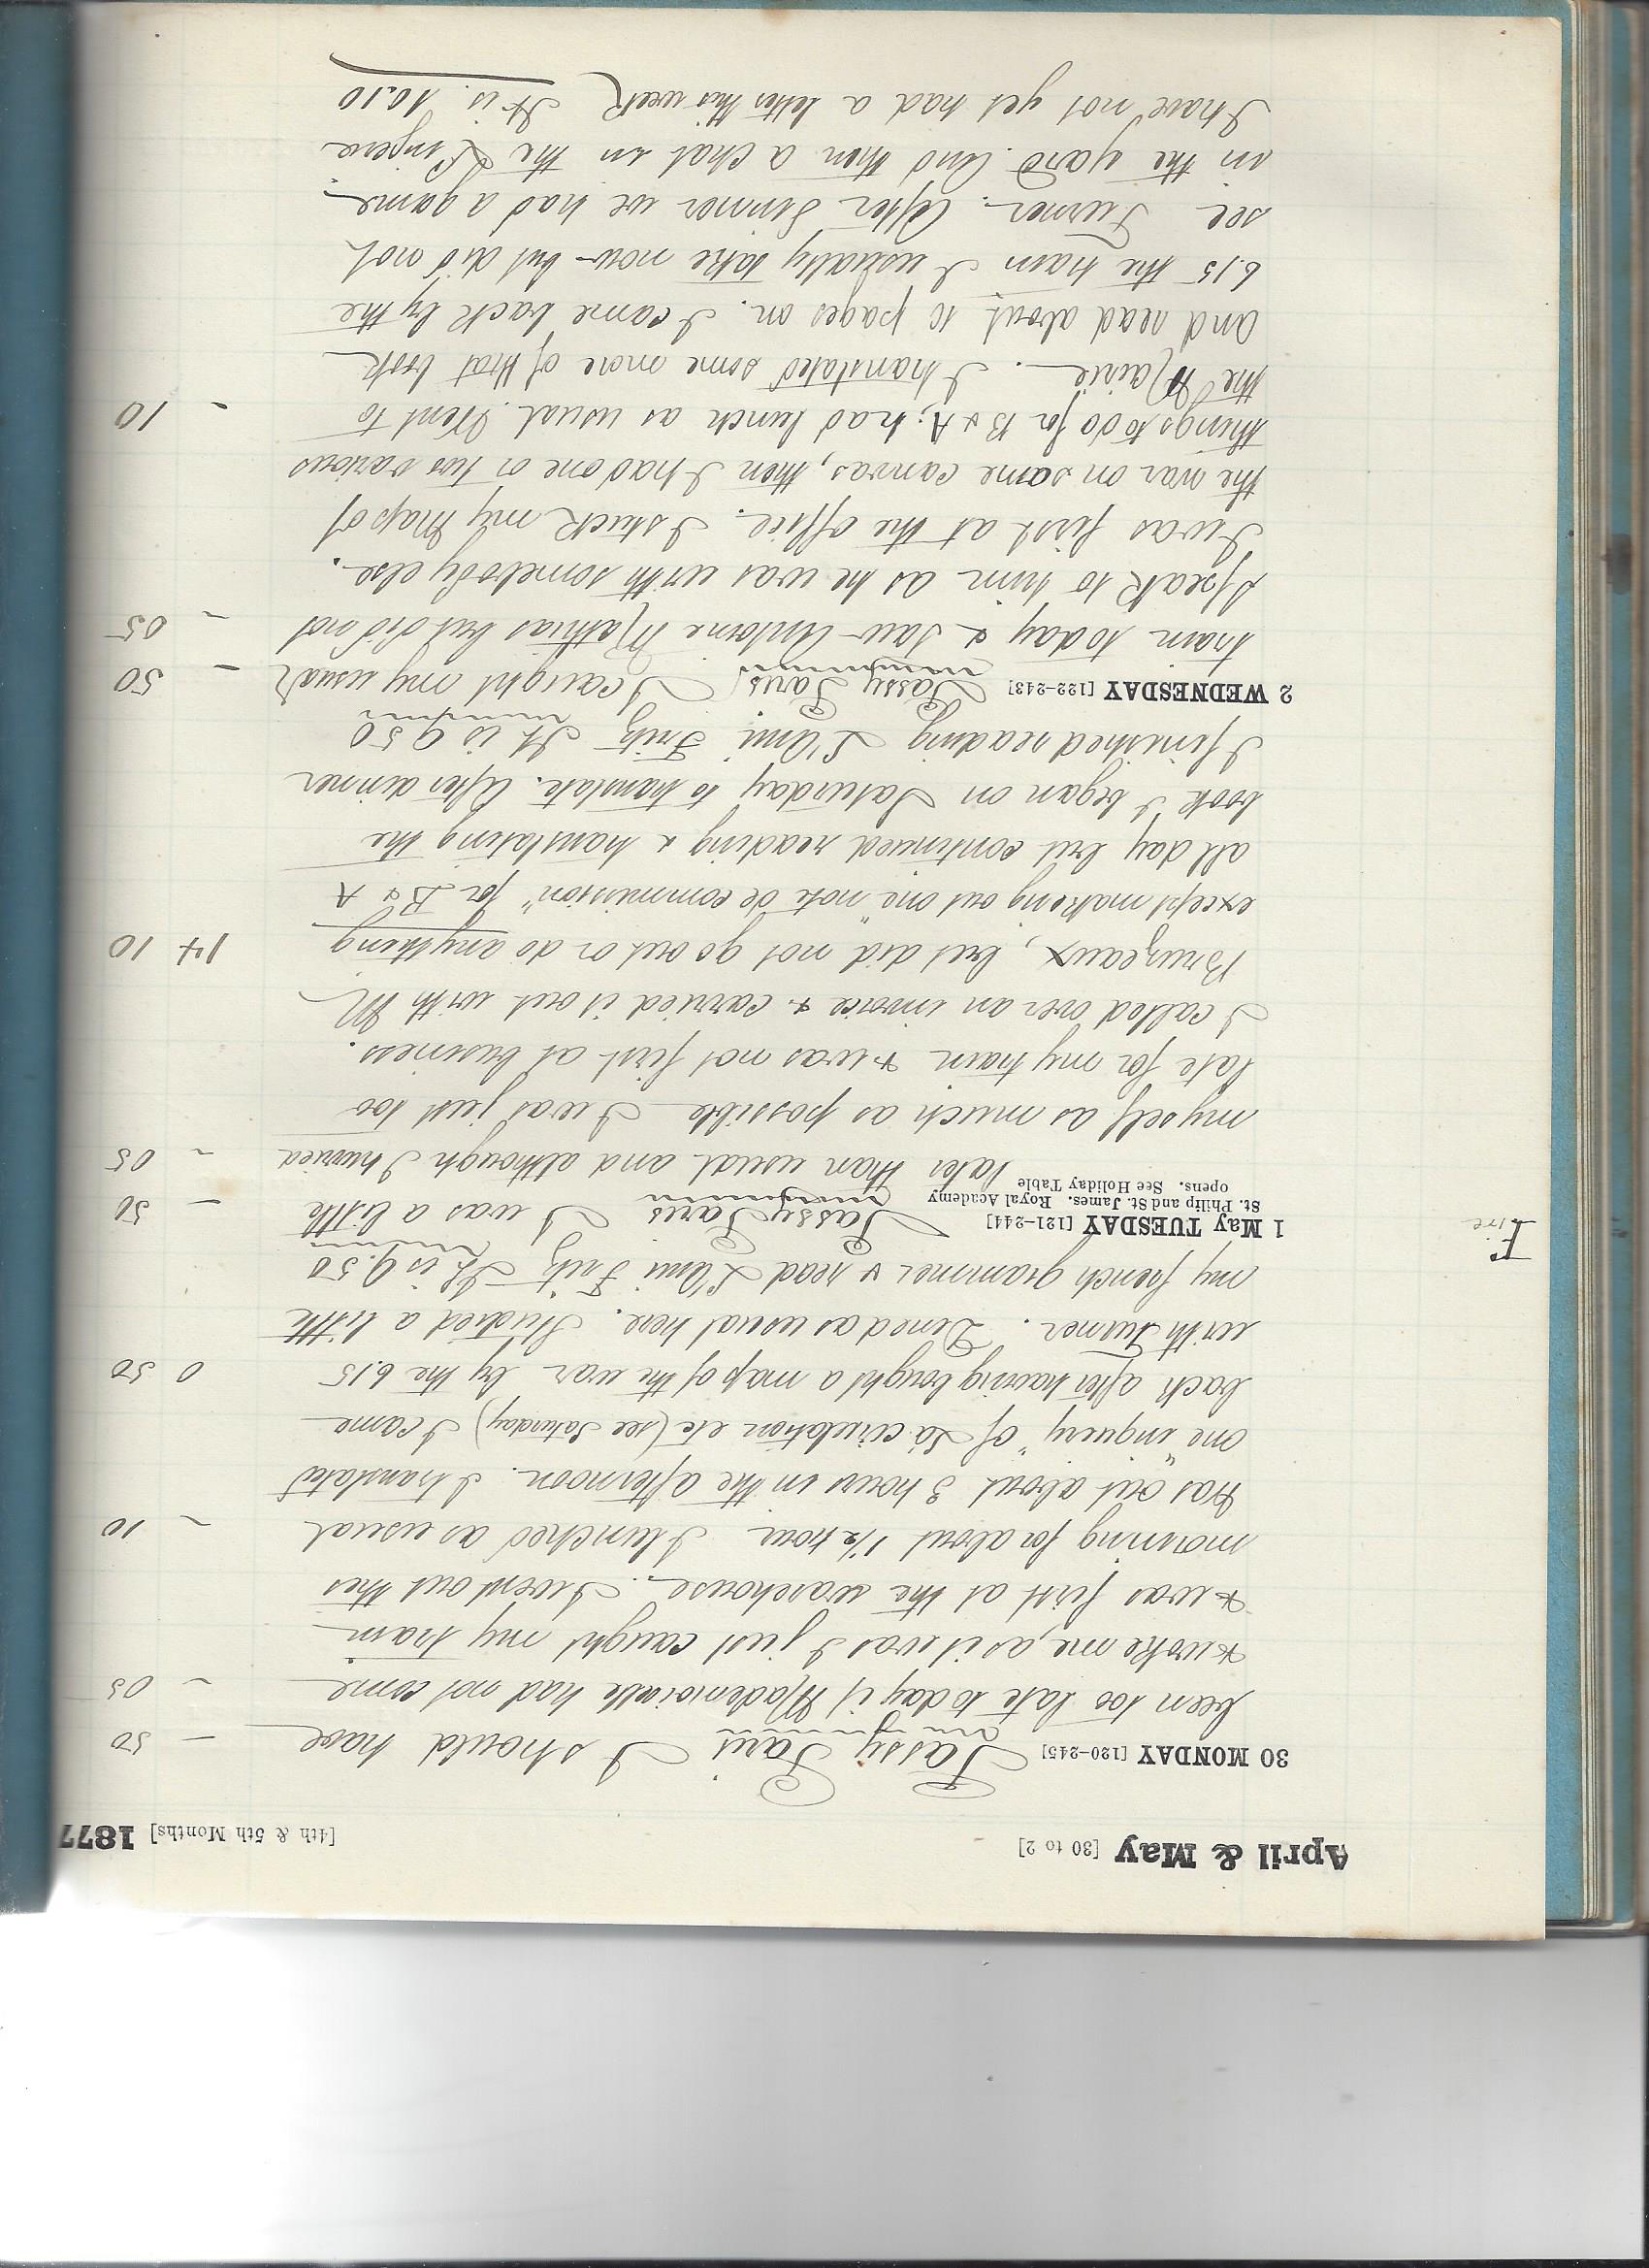 April & May [30 to 2] [4th & 5th Months] 1877
30 MONDAY [120-245] Passy Paris I should have — 50
been too late today if Mademoiselle had not come – 05
& woke me, as it was I just caught my train
& was first at the warehouse. I went out this
morning for about 1½ hour I lunched as usual – 10
Was out about 3 hours in the afternoon. I translated
one "inquery" of La circulation etc (see Saturday) I came
back after having bought a map of the war by the 6.15 0 50
with Turner. Dined as usual here. Studied a little
my french grammer & read L'Ami Fritz It is 9.50
Fire
1 May TUESDAY [121-244] Passy Paris I was a little — 50
St. Philip and St. James. Royal Academy
opens. See Holiday Table
later than usual and although I hurried – 05
myself as much as possible I was just too
late for my train & was not first at business.
I called over an invoice & carried it out with M
Bruzeaux, but did not go out or do anything 14 10
except making out one "note de commission" for B & A
all day but continued reading & translating the
book I began on Saturday to translate. After dinner
I finished reading L'Ami Fritz It is 9 50
2 WEDNESDAY [122-243] Passy Paris I caught my usual — 50
train today & saw Antoine Mathias but did not – 05
speak to him as he was with somebody else.
I was first at the office. I stuck my map of
the war on some canvas, then I had one or two various
things to do for B & A, had lunch as usual. Went to – 10
the Mairie. I translated some more of that book
and read about 10 pages on. I came back by the
6.15 the train I usually take now but did not
see Turner. After dinner we had a game
in the yard and then a chat in the Lingerie
I have not yet had a letter this week It is 10.10